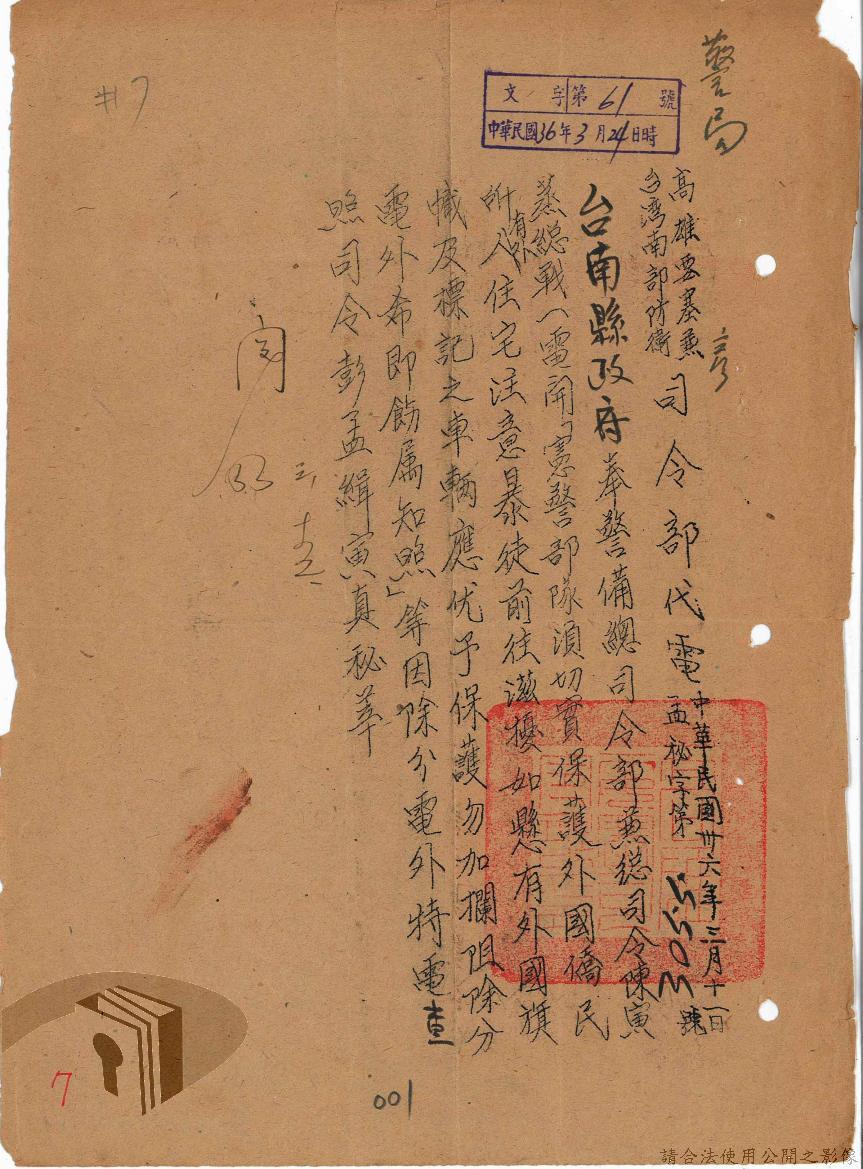 警局
文 字第 61 號
中華民國36年3月24日時
#7
高雄要塞兼
台灣南部防衛
司令部代電
中華民國卅六年三月十一日
孟秘字第
號
台南縣政府奉警備總司令部兼总司令陳寅
蒸總戰一電開「憲警部隊須切實保護外國僑民
所有外人住宅注意暴徒前往滋擾如懸有外國旗
幟及標記之車輛應优予保護勿加攔阻除分
電外希即飭属知照」等因除分電外特電查
照司令彭孟緝寅真秘莘
三、十五
7
001
請合法使用公開之影像